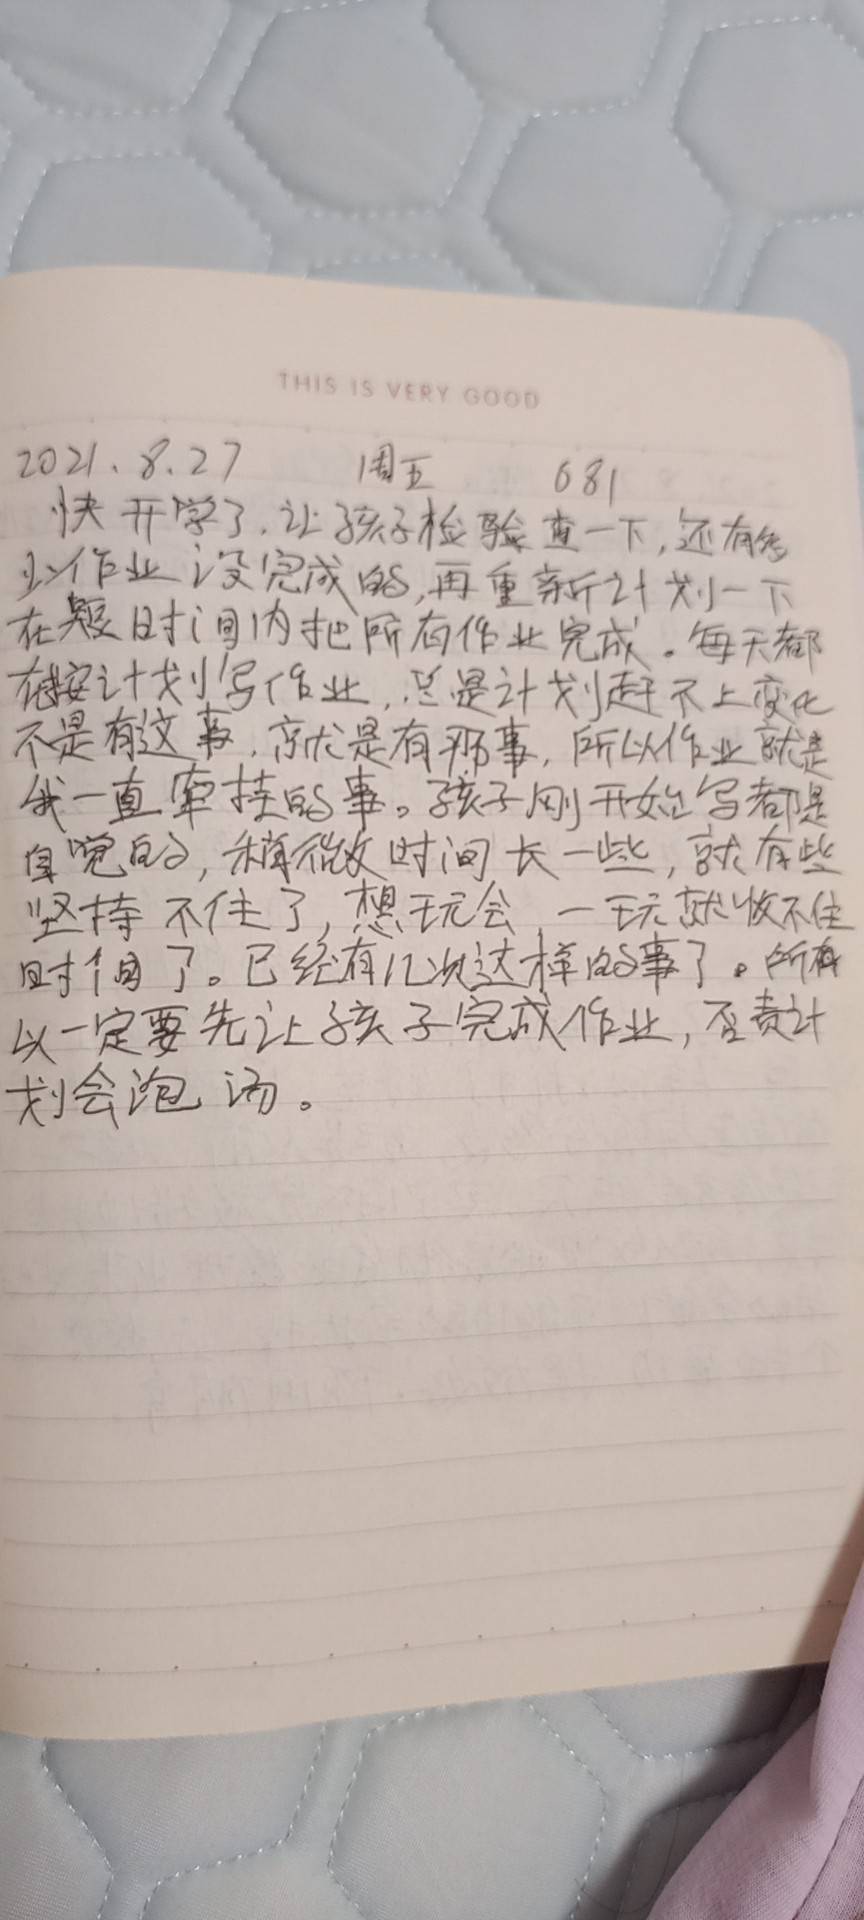 THIS IS VERY GOOD
2021.8.27 周五 681
快开学了.让孩子检验查一下,还有多
少作业没完成的,再重新计划一下
在短时间内把所有作业完成。每天都
在按计划写作业,总是计划赶不上变化
不是有这事,就是有那事,所以作业就是
我一直牵挂的事。孩子刚开始写都是
自觉的,稍微时间长一些,就有些
坚持不住了,想玩会,一玩就收不住
时间了。已经有几次这样的事了。所有
以一定要先让孩子完成作业,否责计
划会泡汤。